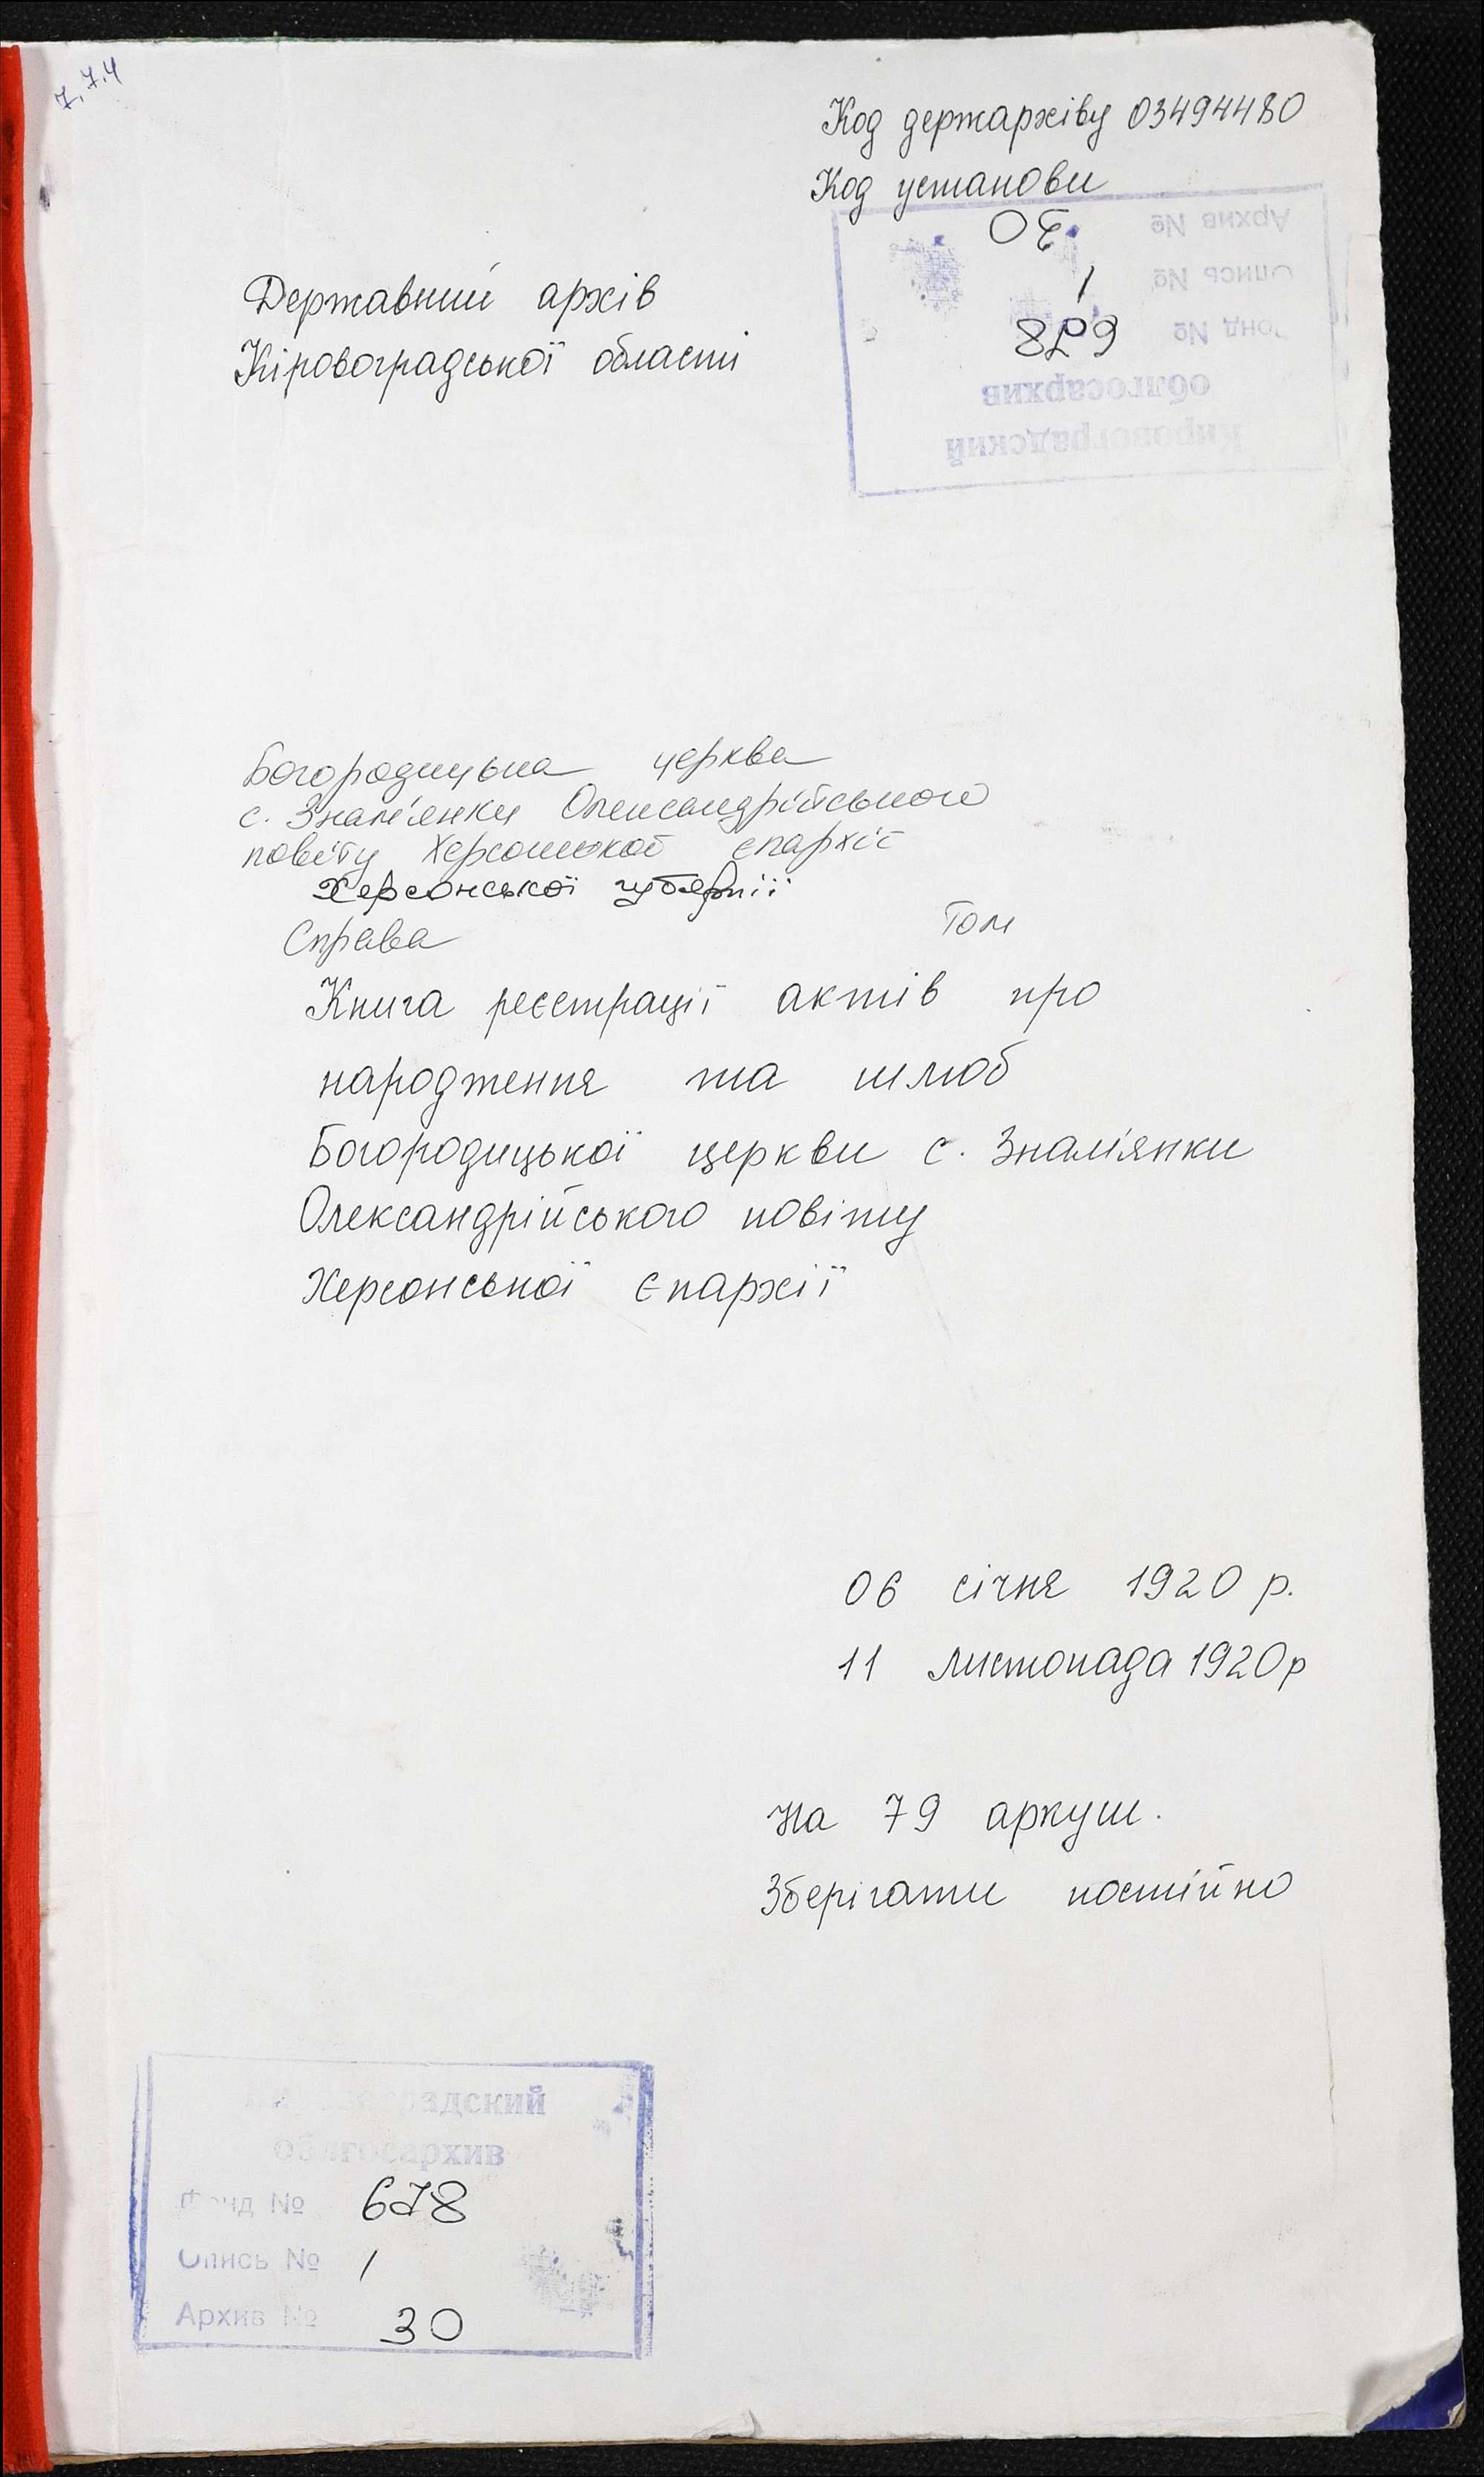 7.7.4
Код держархіву 03494480
Код установи
Архив № 30
Опись № 1
Фонд № 678
облгосархив
Кировоградский
Державний архів
Кіровоградської області
Богородицька церква
с. Знам'янки Олександрійського
повіту Херсонської єпархії
Херсонської губернії
Справа Том
Книга реєстрації актів про
народження та шлюб
Богородицької церкви с. Знам'янки
Олександрійського повіту
Херсонської єпархії
06 січня 1920 р.
11 листопада 1920р
На 79 аркуш.
Зберігати постійно
Кировоградский
облгосархив
Фонд № 678
Опись № 1
Архив № 30